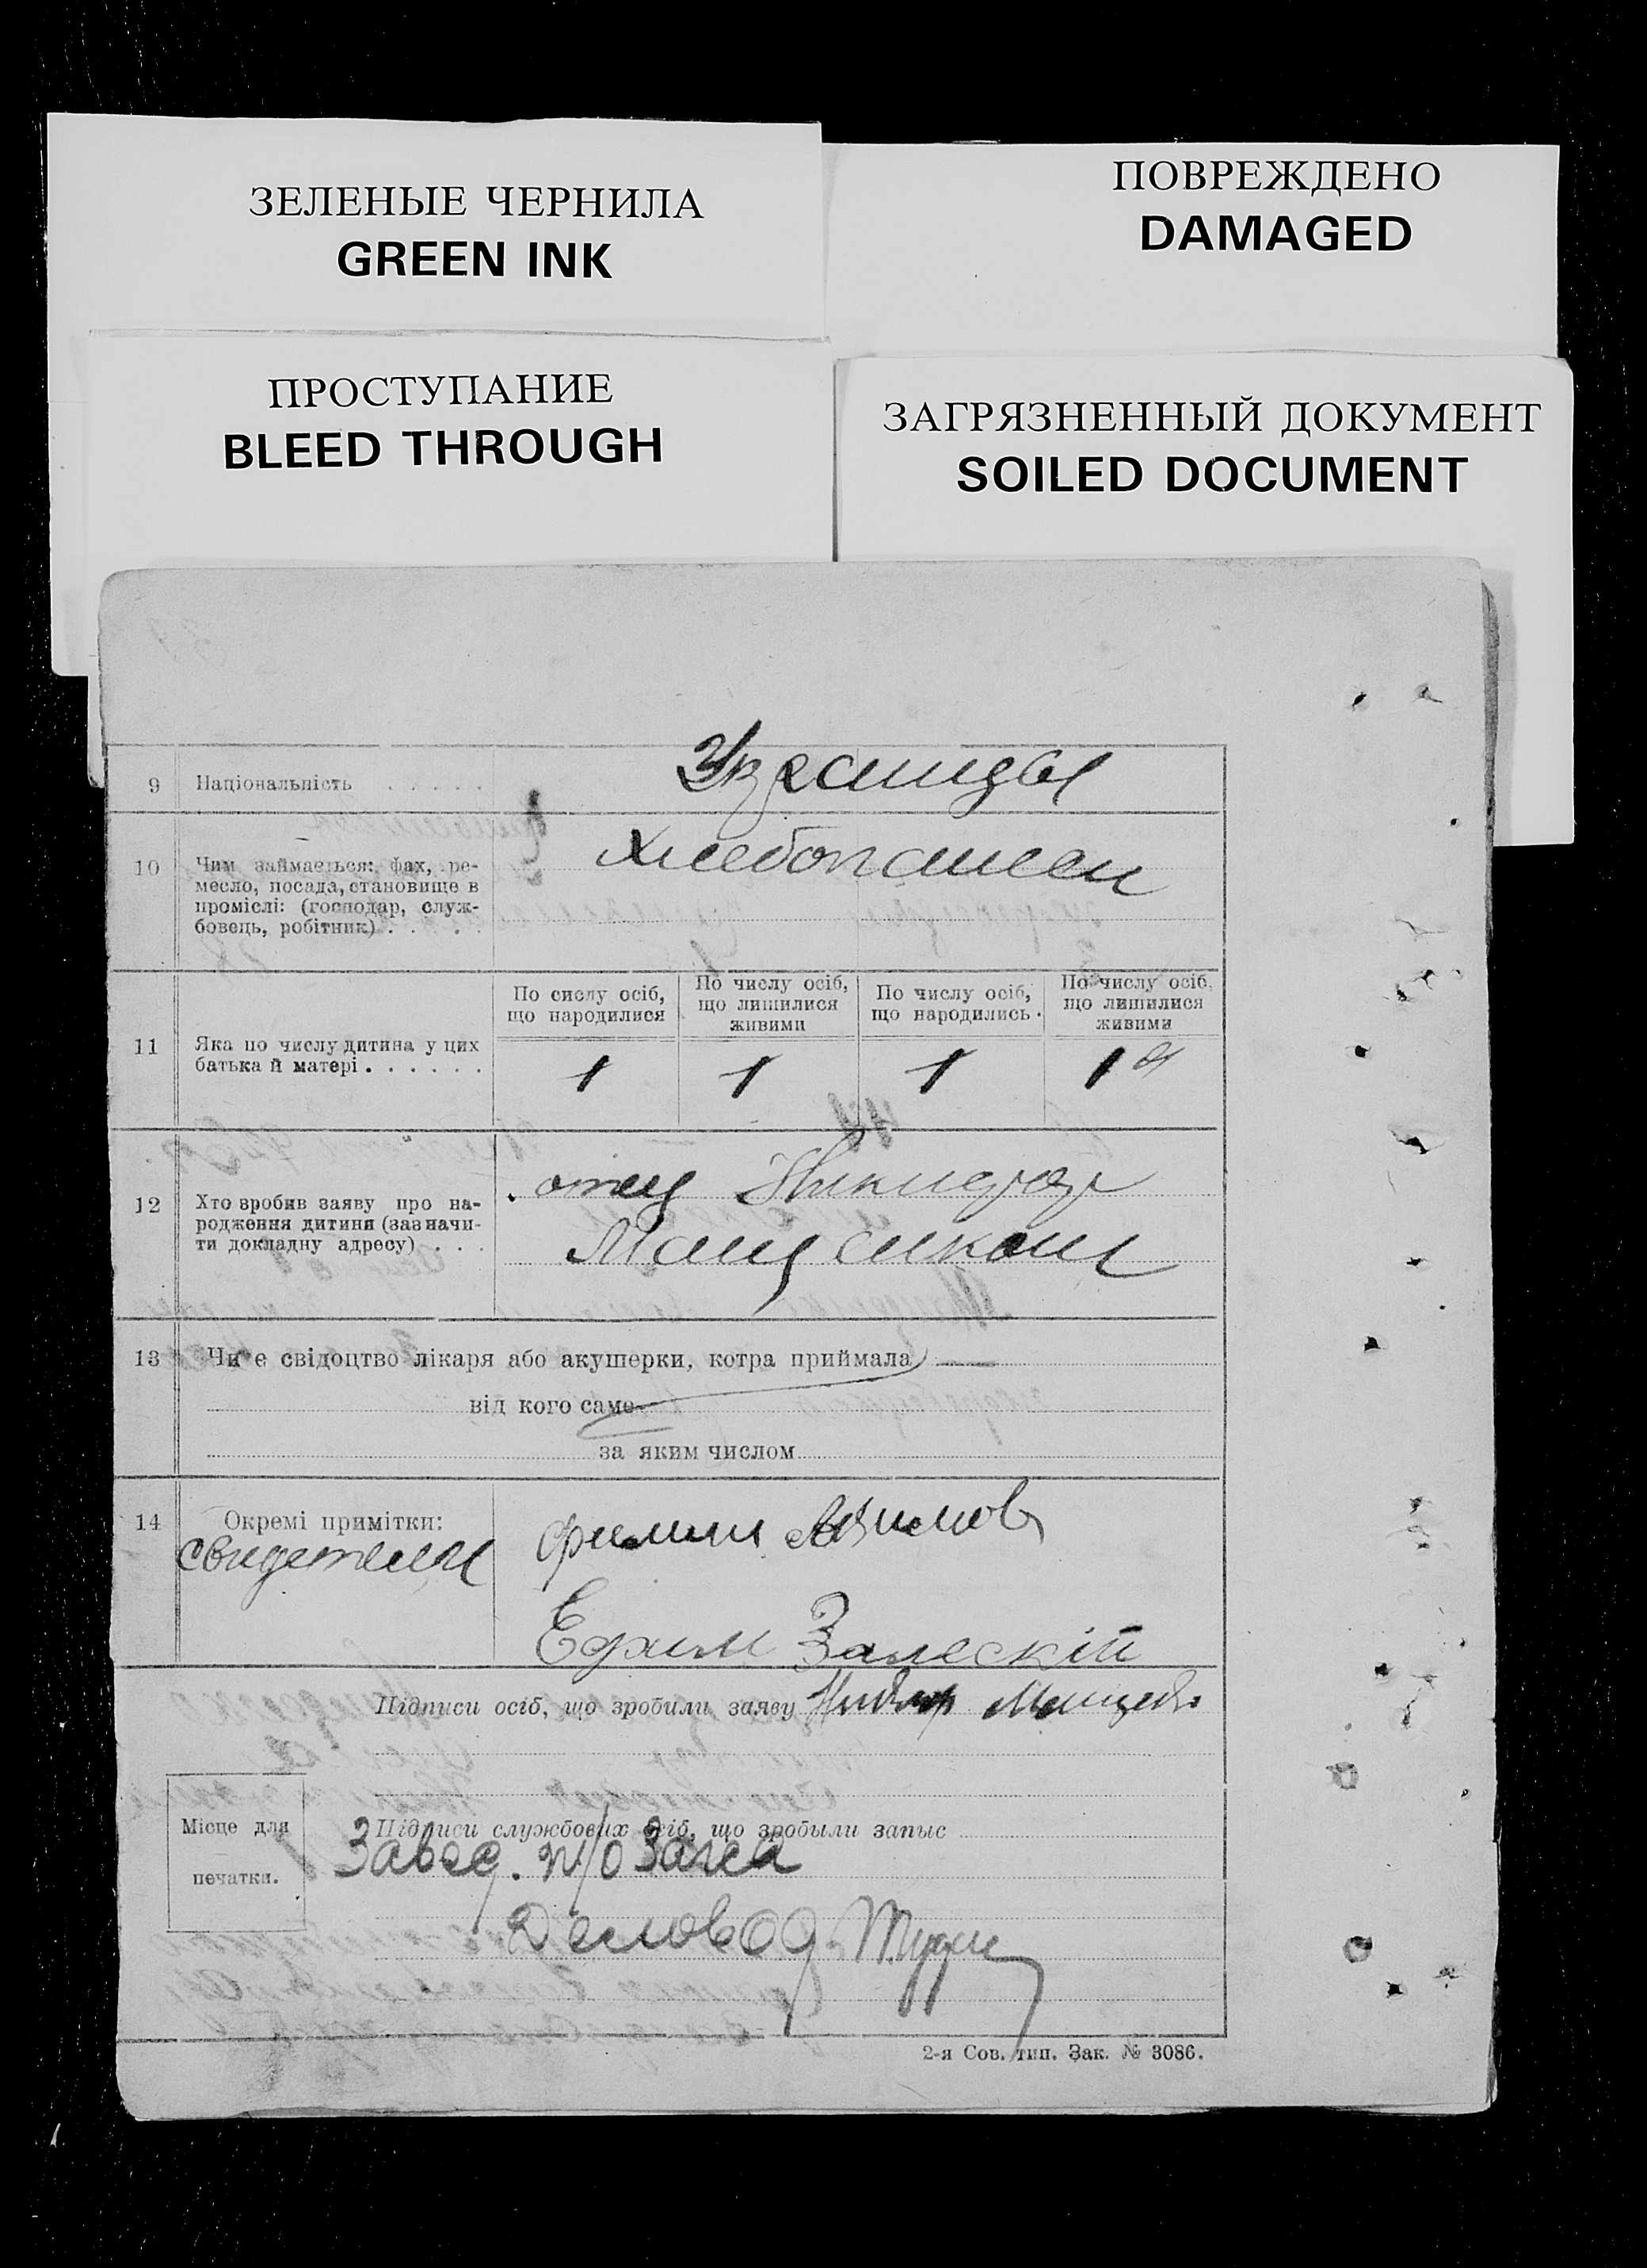 ЗЕЛЕНЫЕ ЧЕРНИЛА
GREEN INK
ПОВРЕЖДЕНО
DAMAGED
ПРОСТУПАНИЕ
BLEED THROUGH
ЗАГРЯЗНЕННЫЙ ДОКУМЕНТ
SOILED DOCUMENT
9 Національність . . . . .
10 Чим займається: фах, ре-
месло, посада, становище в
проміслі: (господар, служ-
бовець, робітник) . . . .
Хлебопашец
11 Яка по числу дитина у цих
батька й матері . . . . . .
По сислу осіб,
що народилися
По числу осіб,
що лишилися
живими
По числу осіб,
що народились.
По числу осіб,
що лишилися
живими
1 1 1 1
12 Хто зробив заяву про на-
родження дитини (зазначи-
ти докладну адресу) . . .
отец
13 Чи є свідоцтво лікаря або акушерки, котра приймала
від кого саме
за яким числом
14 Окремі примітки:
свидетели
Ефим Залескій
Підписи осіб, що зробили заяву
Місце для
печатки.
Підписи службових осіб, що зробыли запыс
Завед. п/о Загса
Деловод
2-я Сов. тип. Зак. № 3086.